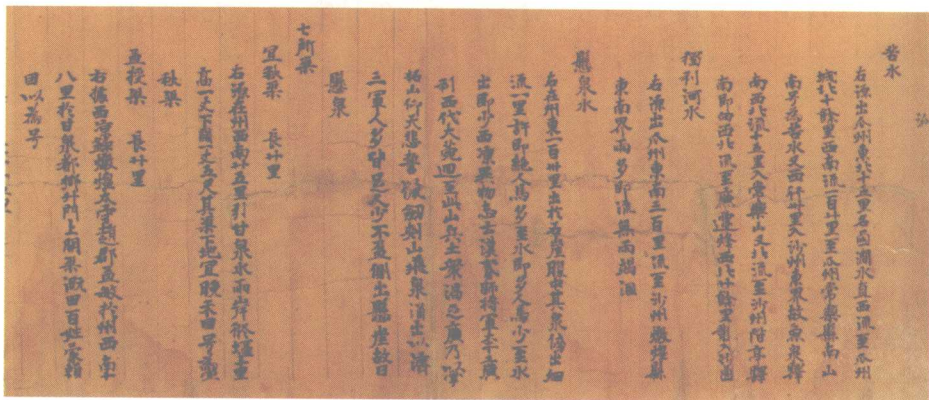 苦水
右源出瓜州東北十五里名鹵澗水直西流至瓜州
城北十餘里西南流一百廿里至瓜州常樂縣南山
南号為苦水又西行卅里入沙州東界故魚泉驛
南西北流十五里入常樂山又北流至沙州階亭驛
南即向西北流至廉遷烽西北廿餘里散入沙鹵
獨利河水
右源出瓜州東南三百里流至沙州燉煌縣
東南界雨多即流無雨竭涸
懸泉水
右在州東一百卅里出於石崖腹中其泉傍出細
流一里許即絕人馬多至水即多人馬少至水
出即少西涼異物志云漢貳師將軍李廣
利西伐大宛迴至此山兵士眾渴乏廣乃以掌
拓山仰天悲誓以佩劍刺山飛泉涌出以濟
三軍人多皆足人少不盈側出懸崖故曰
懸泉
七所渠
宜秋渠 長廿里
右源在州西南廿五里引甘泉水兩岸修堰十里
高一丈下闊一丈五尺其渠下地宜晚禾因号為宜
秋渠
孟授渠 長廿里
右據西涼錄燉煌太守趙郡孟敏於州西南十
八里於甘泉都鄉斗門上開渠溉田百姓蒙賴
因以為号